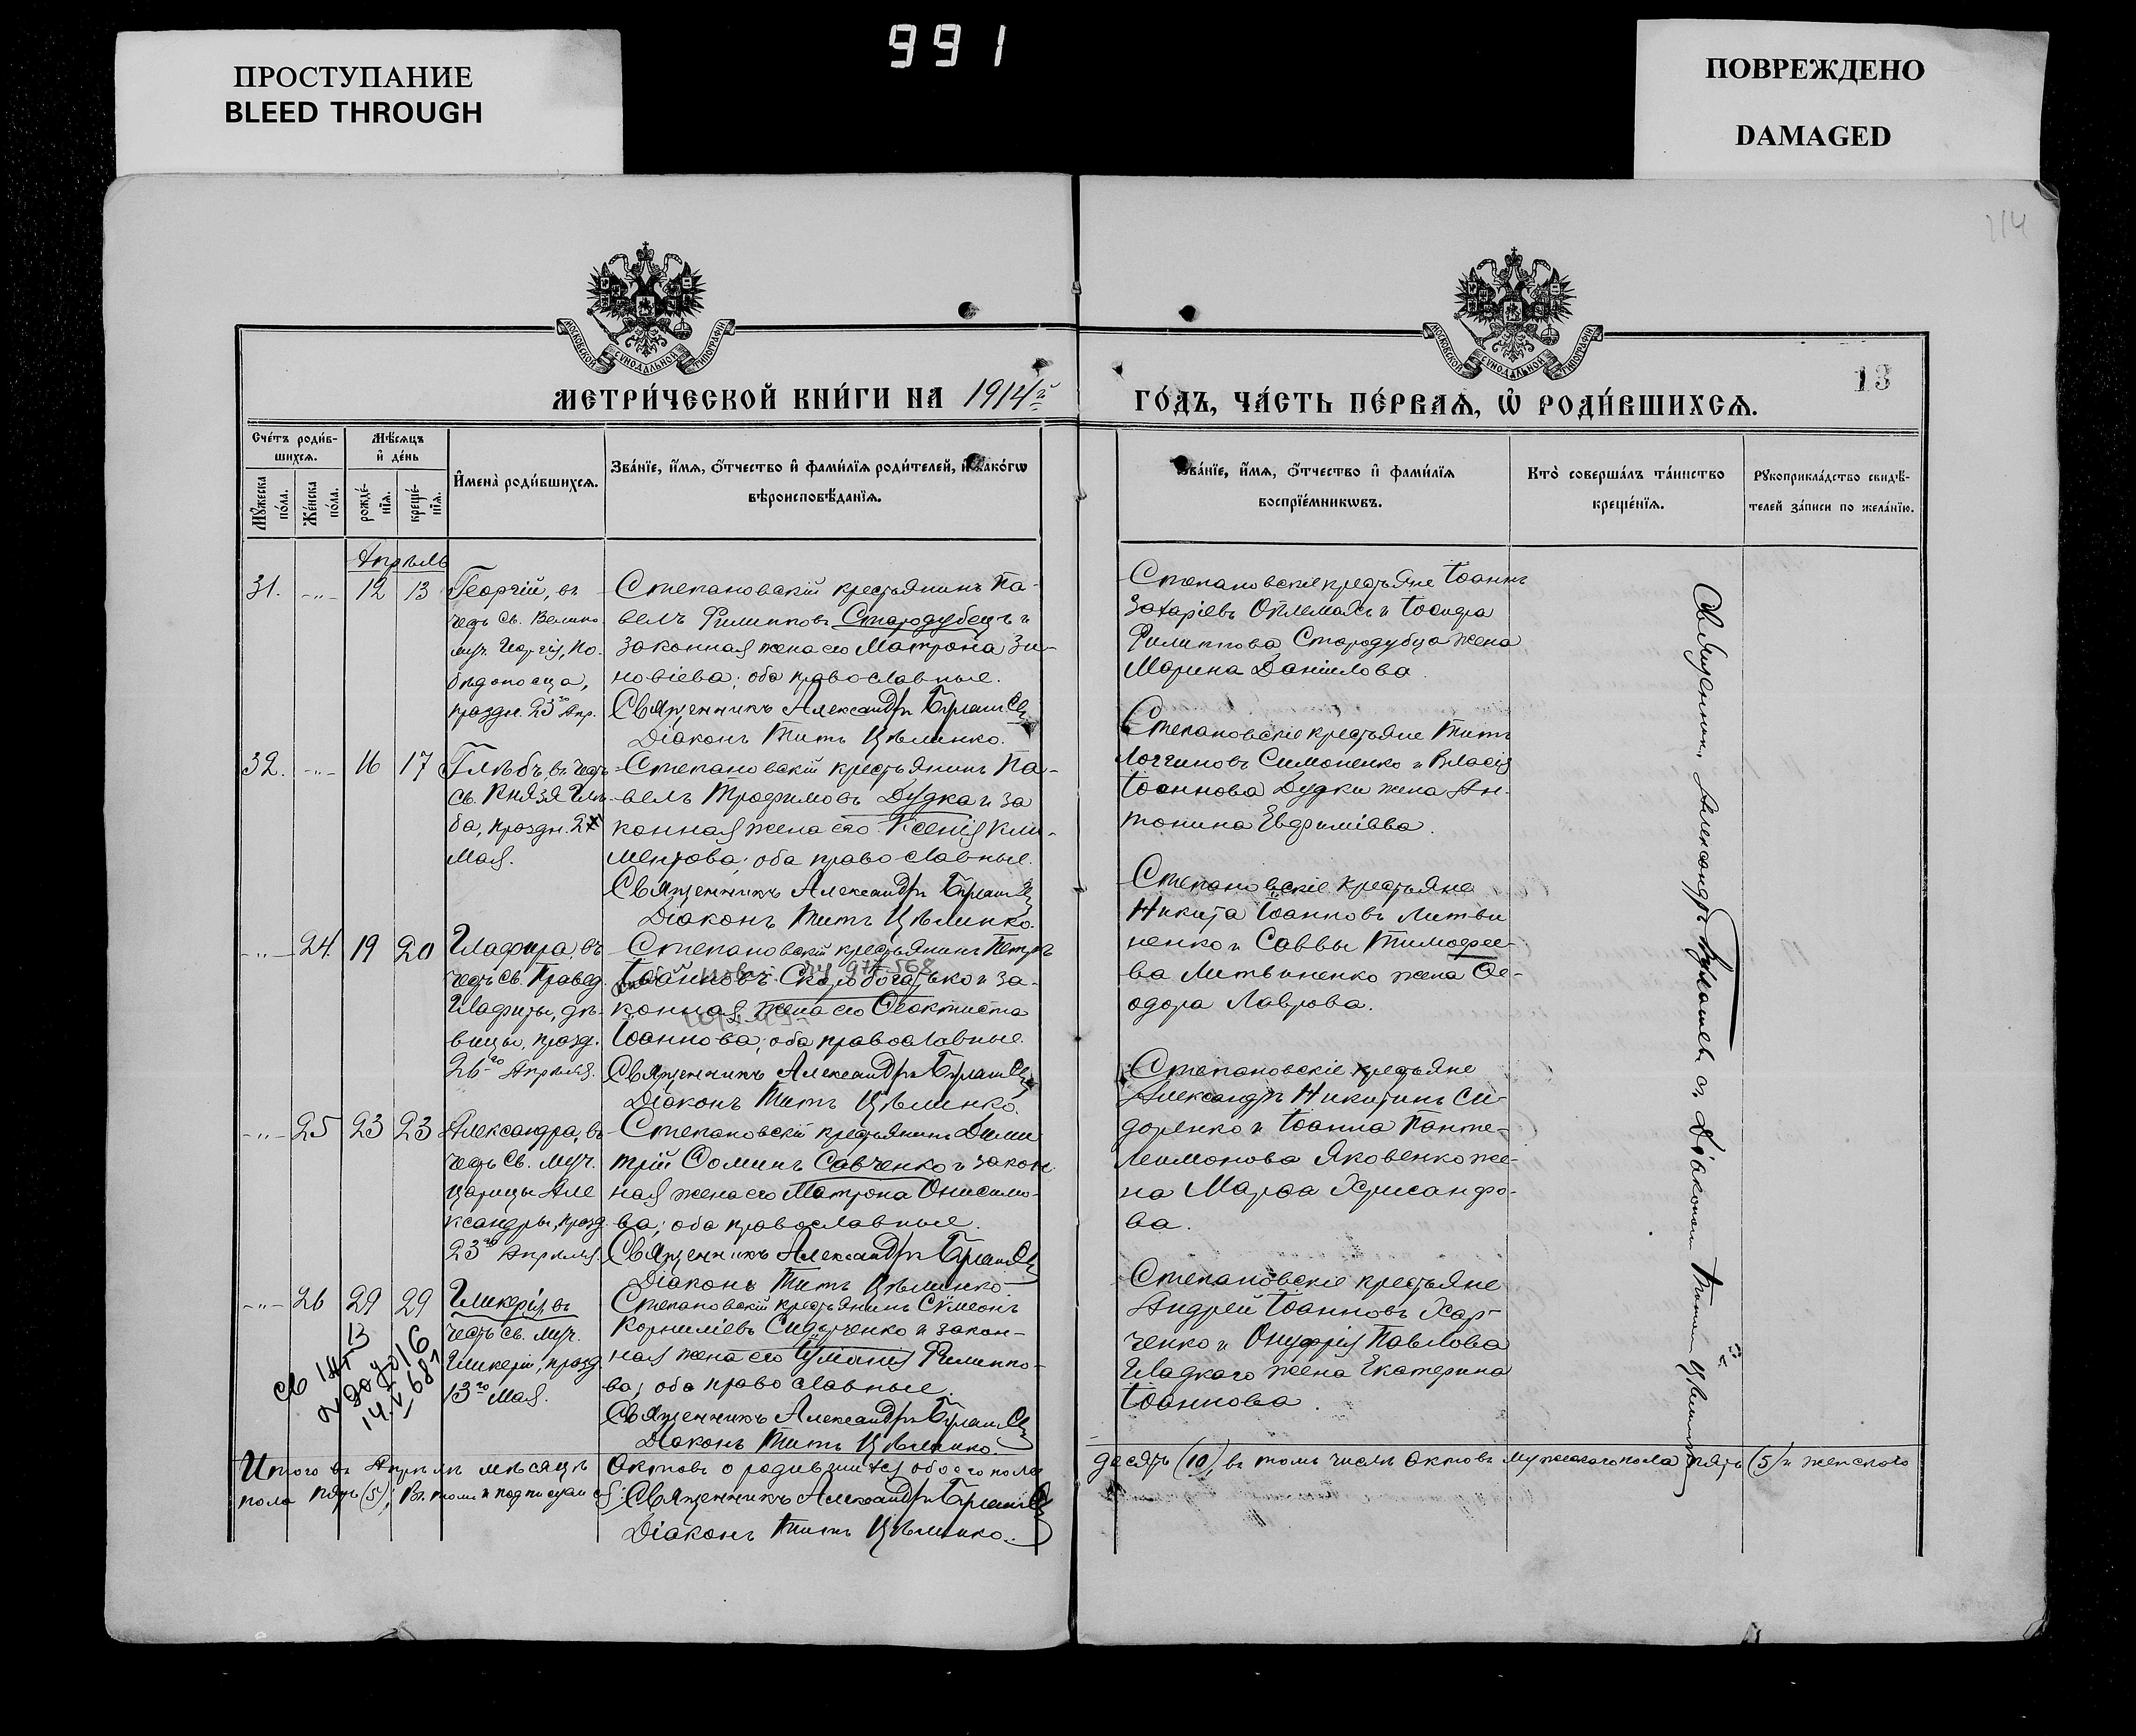 991
ПРОСТУПАНИЕ
BLEED THROUGH
ПОВРЕЖДЕНО
DAMAGED
114
МОСКОВСКОЙ СѴНОДАЛЬНОЙ ТИПОГРАФІИ
МОСКОВСКОЙ СѴНОДАЛЬНОЙ ТИПОГРАФІИ
13
МЕТРИ́ЧЕСКОЙ КНИ́ГИ НА 1914й
ГО́ДЪ, ЧА́СТЬ ПЕ́РВАѦ, Ѡ҆ РОДИ́ВШИХСѦ.
Сче́тъ роди́в-
шихсѧ.
Мꙋ́жеска по́ла.
Же́нска по́ла.
Мѣ́сѧцъ
и҆ де́нь
рожде́-нїѧ.
креще́-нїѧ.
И҆мена̀ роди́вшихсѧ.
Зва́нїе, и҆́мѧ, ѻ҆́тчество и҆ фами́лїѧ роди́телей, и҆ како́гѡ
вѣроисповѣ́данїѧ.
Зва́нїе, и҆́мѧ, ѻ҆́тчество и҆ фами́лїѧ
воспрїе́мникѡвъ.
Кто̀ соверша́лъ та́инство
креще́нїѧ.
Рꙋкоприкла́дство свидѣ́-
телей за́писи по жела́нїю.
Апрѣль
31. -"- 12 13
Георгій, въ
честь Св. Велико-
муч. Георгія, По-
бѣдоносца,
праздн. 23го Апр.
Степановскій крестьянинъ Па-
велъ Филипповъ Стародубецъ и
законная жена его Матрона Зи-
новіева; оба православные.
Священникъ Александръ
Діаконъ Титъ Цѣлинко.
Степановскіе крестьяне Іоаннъ
Захаріевъ и Іосифа
Филиппова Стародубца жена
Марина Даніилова.
32. -"- 16 17
Глѣбъ, въ честь
Св. Князя Глѣ-
ба, праздн. 2
Мая.
Степановскій крестьянинъ Па-
велъ Трофимовъ Дудка и за
конная жена его Ксенія Кли-
ментова; оба православные.
Священникъ Александръ
Діаконъ Титъ Цѣлинко.
Степановскіе крестьяне Титъ
Логгиновъ Симоненко и Власія
Іоаннова Дудки жена Ан-
тонина Евфиміева.
-"- 24. 19 20
Глафира, въ
честь Св. Правед.
Глафиры, дѣ-
вицы, празд.
26го Апрѣля.
Степановскій крестьянинъ Петръ
Іоанновъ Скоробогатько и за-
конная жена его Ѳеоктиста
Іоаннова; оба православные.
Священникъ Александръ
Діаконъ Титъ Цѣлинко.
Степановскіе крестьяне
Никита Іоанновъ Литви
ненко и Саввы Тимофее-
ва Литвиненко жена Ѳе-
одора Лаврова.
-"- 25 23 23
Александра, въ
честь Св. Муч.
Царицы Але
ксандры, празд.
23го Апрѣля.
Степановскій крестьянинъ Дими
трій Ѳоминъ Савченко и закон
ная жена его Матрона Онисимо-
ва; оба православные.
Священникъ Александръ
Діаконъ Титъ Цѣлинко.
Степановскіе крестьяне
Александръ Никитинъ Си-
доренко и Іоанна Панте-
леимонова Яковенко же-
на Марѳа Хрисанфо-
ва.
-"- 26 29 29
Гликерія, въ
честь Св. Муч.
Гликеріи, празд.
13го Мая.
Степановскій крестьянинъ Сѵмеонъ
Корниліевъ Сидорченко и закон-
ная жена его Іуліанія Филиппо-
ва; оба православные.
Священникъ Александръ
Діаконъ Титъ Цѣлинко.
Степановскіе крестьяне
Андрей Іоанновъ Хар-
ченко и Онуфрія Павлова
Гладкаго жена Екатерина
Іоаннова.
Священникъ Александръ съ Діакономъ Титомъ Цѣлинко
Итого въ Апрѣлѣ мѣсяцѣ Актовъ о родившихся обоего пола десять (10), въ томъ числѣ актовъ мужескаго пола пять (5) и женскаго
пола пять (5); въ томъ и подписуемся: Священникъ Александръ
Діаконъ Титъ Цѣлинко.